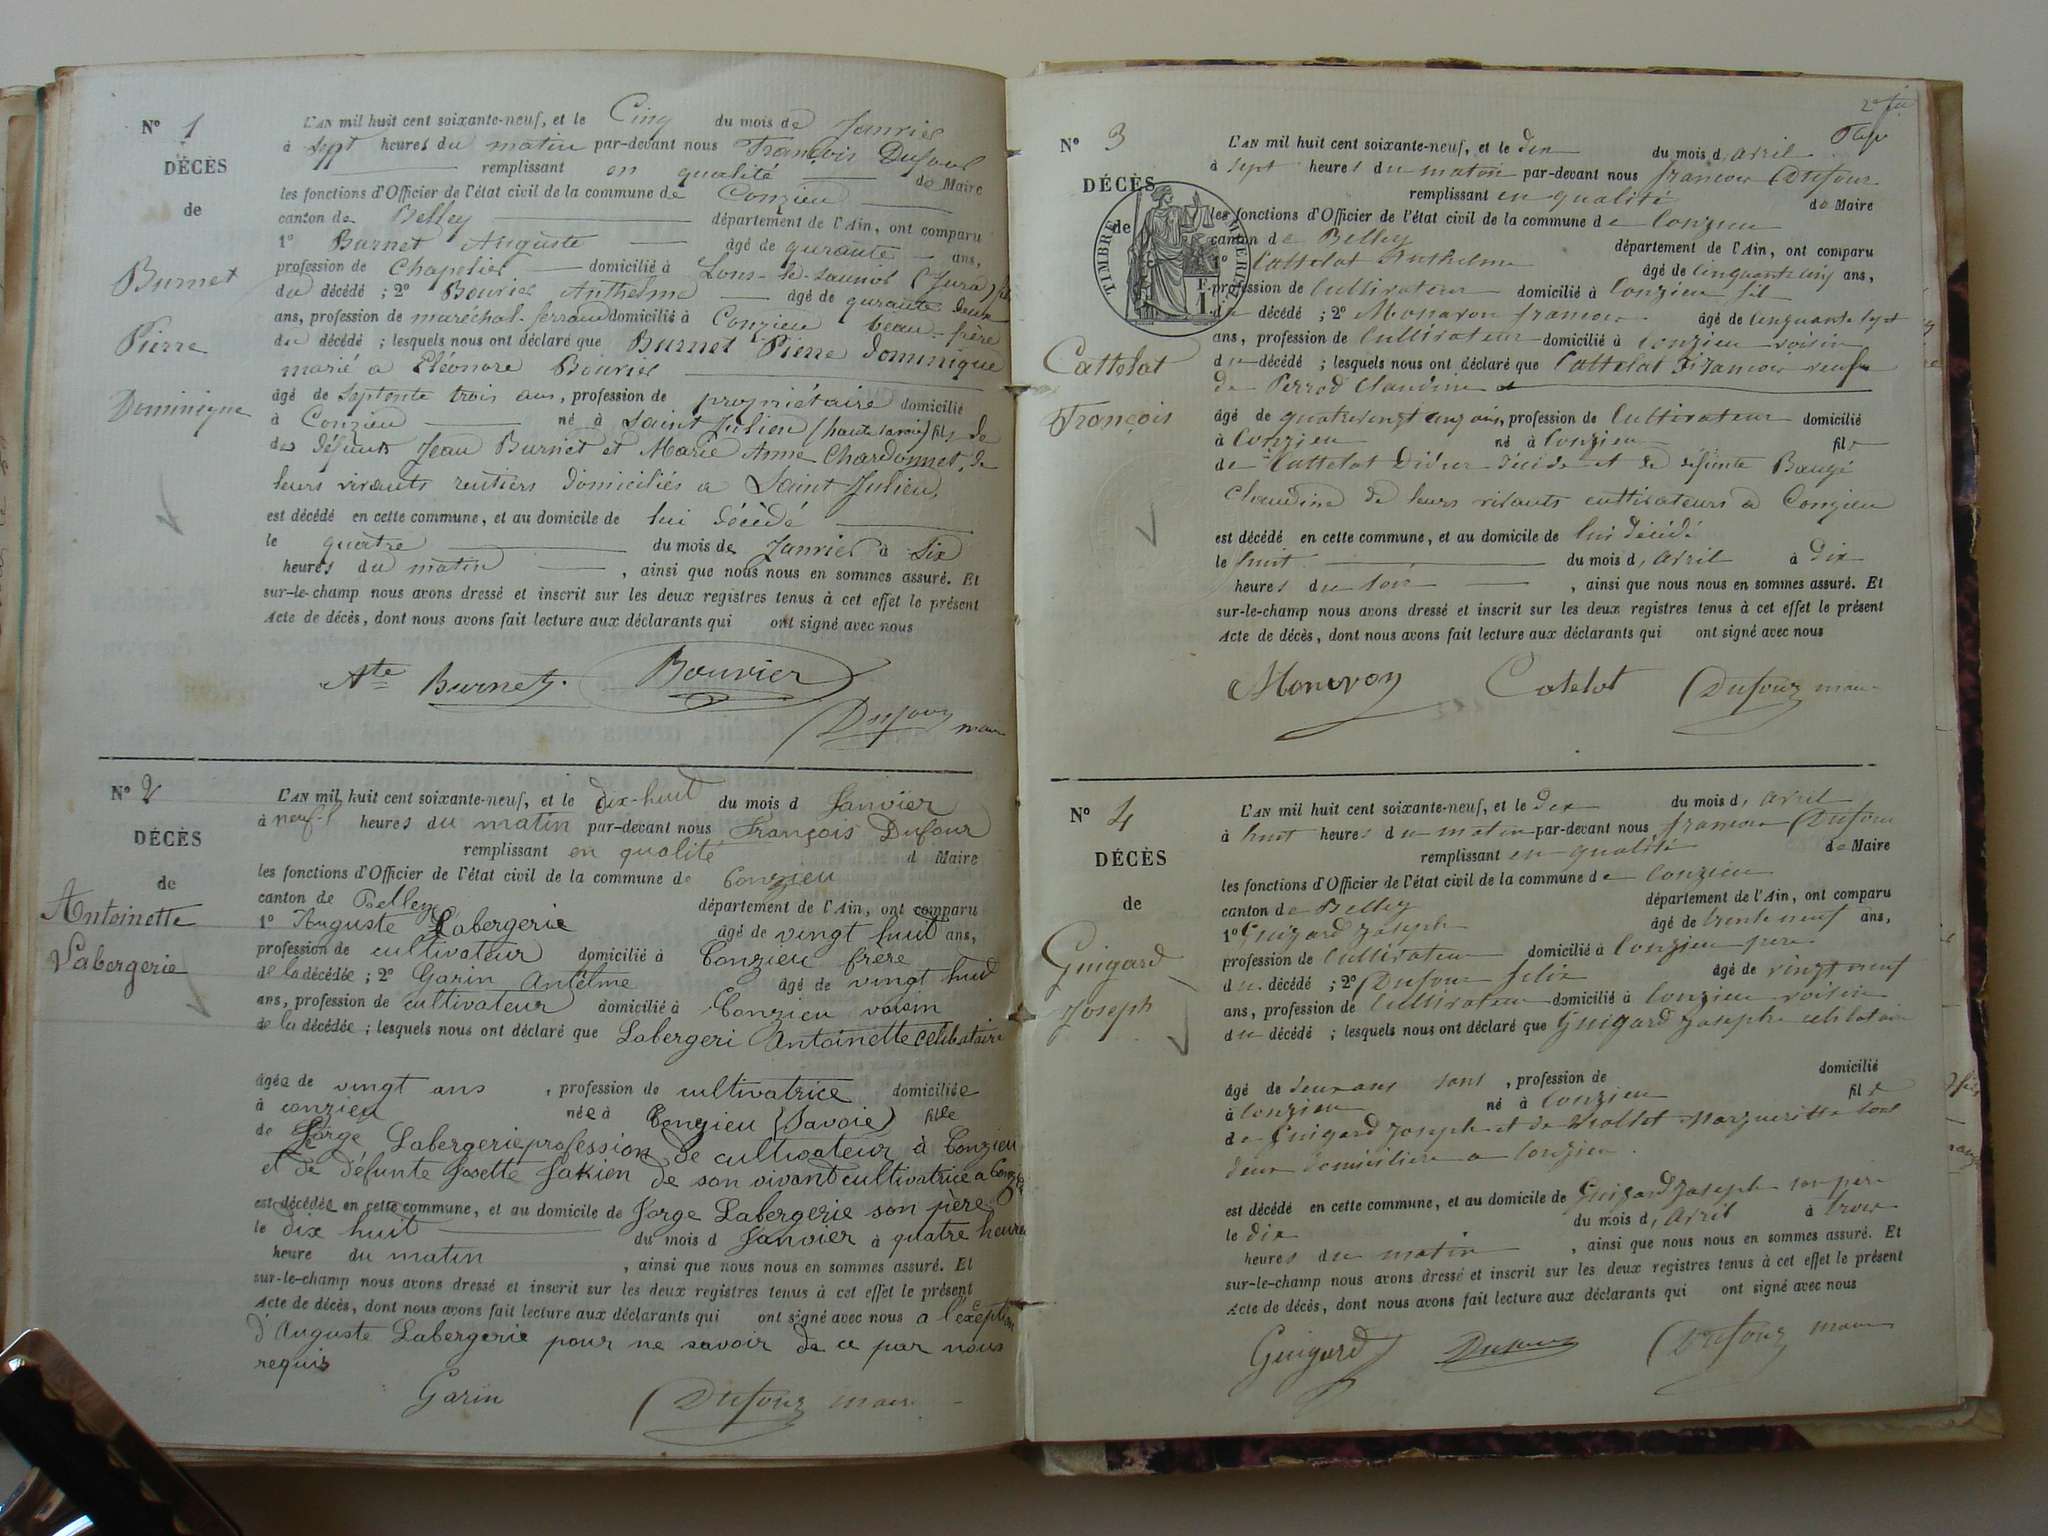 N° 1
DÉCÈS
de
Burnet
Pierre
Dominique
L'AN mil huit cent soixante-neuf, et le Cinq du mois de Janvier
à sept heures du matin par-devant nous François Dufour
remplissant en qualité de Maire
les fonctions d'Officier de l'état civil de la commune de Conzieu
canton de Belley département de l'Ain, ont comparu
1° Burnet Auguste âgé de quarante ans,
profession de Chapelier domicilié à Lons-le-Saunier (Jura) fils
du décédé ; 2° Bouvier Anthelme âgé de quarante deux
ans, profession de maréchal-ferrand domicilié à Conzieu beau-frère
du décédé ; lesquels nous ont déclaré que Burnet Pierre Dominique
marié a Eléonore Bouvier
âgé de septente trois ans, profession de propriétaire domicilié
à Conzieu né à Saint Julien (haute savoie) fils de
des défunts Jean Burnet et Marie Anne Chardonnet, de
leurs vivants rentiers domiciliés a Saint Julien,
est décédé en cette commune, et au domicile de lui décédé
le quatre du mois de Janvier à six
heures du matin , ainsi que nous nous en sommes assuré. Et
sur-le-champ nous avons dressé et inscrit sur les deux registres tenus à cet effet le présent
Acte de décès, dont nous avons fait lecture aux déclarants qui ont signé avec nous
Ate Burnet. Bouvier
Dufour maire
N° 2
DÉCÈS
de
Antoinette
Labergerie
L'AN mil huit cent soixante-neuf, et le dix-huit du mois d Janvier
à neuf heures du matin par-devant nous François Dufour
remplissant en qualité d Maire
les fonctions d'Officier de l'état civil de la commune de Conzieu
canton de Belley département de l'Ain, ont comparu
1° Auguste Labergerie âgé de vingt huit ans,
profession de cultivateur domicilié à Conzieu frère
de la décédée ; 2° Garin Antelme âgé de vingt huit
ans, profession de cultivateur domicilié à Conzieu voisin
de la décédée ; lesquels nous ont déclaré que Labergeri Antoinette celibataire
âgée de vingt ans , profession de cultivatrice domiciliée
à conzieu née à Conzieu (Savoie) fille
de Jorge Labergerie profession de cultivateur à Conzieu
et de défunte Josette de son vivant cultivatrice a
est décédée en cette commune, et au domicile de Jorge Labergerie son père
le dix huit du mois d Janvier à quatre heures
heure du matin , ainsi que nous nous en sommes assuré. Et
sur-le-champ nous avons dressé et inscrit sur les deux registres tenus à cet effet le présent
Acte de décès, dont nous avons fait lecture aux déclarants qui ont signé avec nous a l'exeption
d'Auguste Labergerie pour ne savoir de ce par nous
requis
Garin Dufour maire
2e
N° 3
DÉCÈS
de
TIMBRE IMPERIAL
Cattelat
François
L'AN mil huit cent soixante-neuf, et le dix du mois d, avril
à sept heures du matin par-devant nous francois Dufour
remplissant en qualité de Maire
les fonctions d'Officier de l'état civil de la commune de Conzieu
canton de Belley département de l'Ain, ont comparu
1° Cattelat Anthelme âgé de cinquante cinq ans,
profession de cultivateur domicilié à Conzieu fil
du décédé ; 2° Monavon francois âgé de cinquante sept
ans, profession de cultivateur domicilié à conzieu voisin
du décédé ; lesquels nous ont déclaré que Cattelat François veuf
de Perrod Claudine
âgé de quatrevingt onze ans, profession de cultivateur domicilié
à Conzieu né à Conzieu fils
de Cattelat Didier décédé et de défunte Baugé
Claudine de leurs vivants cultivateurs a Conzieu
est décédé en cette commune, et au domicile de lui décédé
le huit du mois d, avril à dix
heures du soir , ainsi que nous nous en sommes assuré. Et
sur-le-champ nous avons dressé et inscrit sur les deux registres tenus à cet effet le présent
Acte de décès, dont nous avons fait lecture aux déclarants qui ont signé avec nous
Monavon Catelot Dufour maire
N° 4
DÉCÈS
de
Guigard
Joseph
L'AN mil huit cent soixante-neuf, et le dix du mois d, avril
à huit heures du matin par-devant nous francois Dufour
remplissant en qualité de Maire
les fonctions d'Officier de l'état civil de la commune de Conzieu
canton de Belley département de l'Ain, ont comparu
1° Guigard Joseph âgé de trente neuf ans,
profession de cultivateur domicilié à Conzieu pere
du décédé ; 2° Dufour felix âgé de vingt neuf
ans, profession de cultivateur domicilié à Conzieu voisin
du décédé ; lesquels nous ont déclaré que Guigard Joseph celibataire
âgé de deux ans sans , profession de domicilié
à Conzieu né à Conzieu fils
de Guigard Joseph et de Viollet Margueritte tous
deux domiciliers a Conzieu.
est décédé en cette commune, et au domicile de Guigard Joseph son pere
le dix du mois d, avril à trois
heures du matin , ainsi que nous nous en sommes assuré. Et
sur-le-champ nous avons dressé et inscrit sur les deux registres tenus à cet effet le présent
Acte de décès, dont nous avons fait lecture aux déclarants qui ont signé avec nous
Guigard Dufour Dufour maire